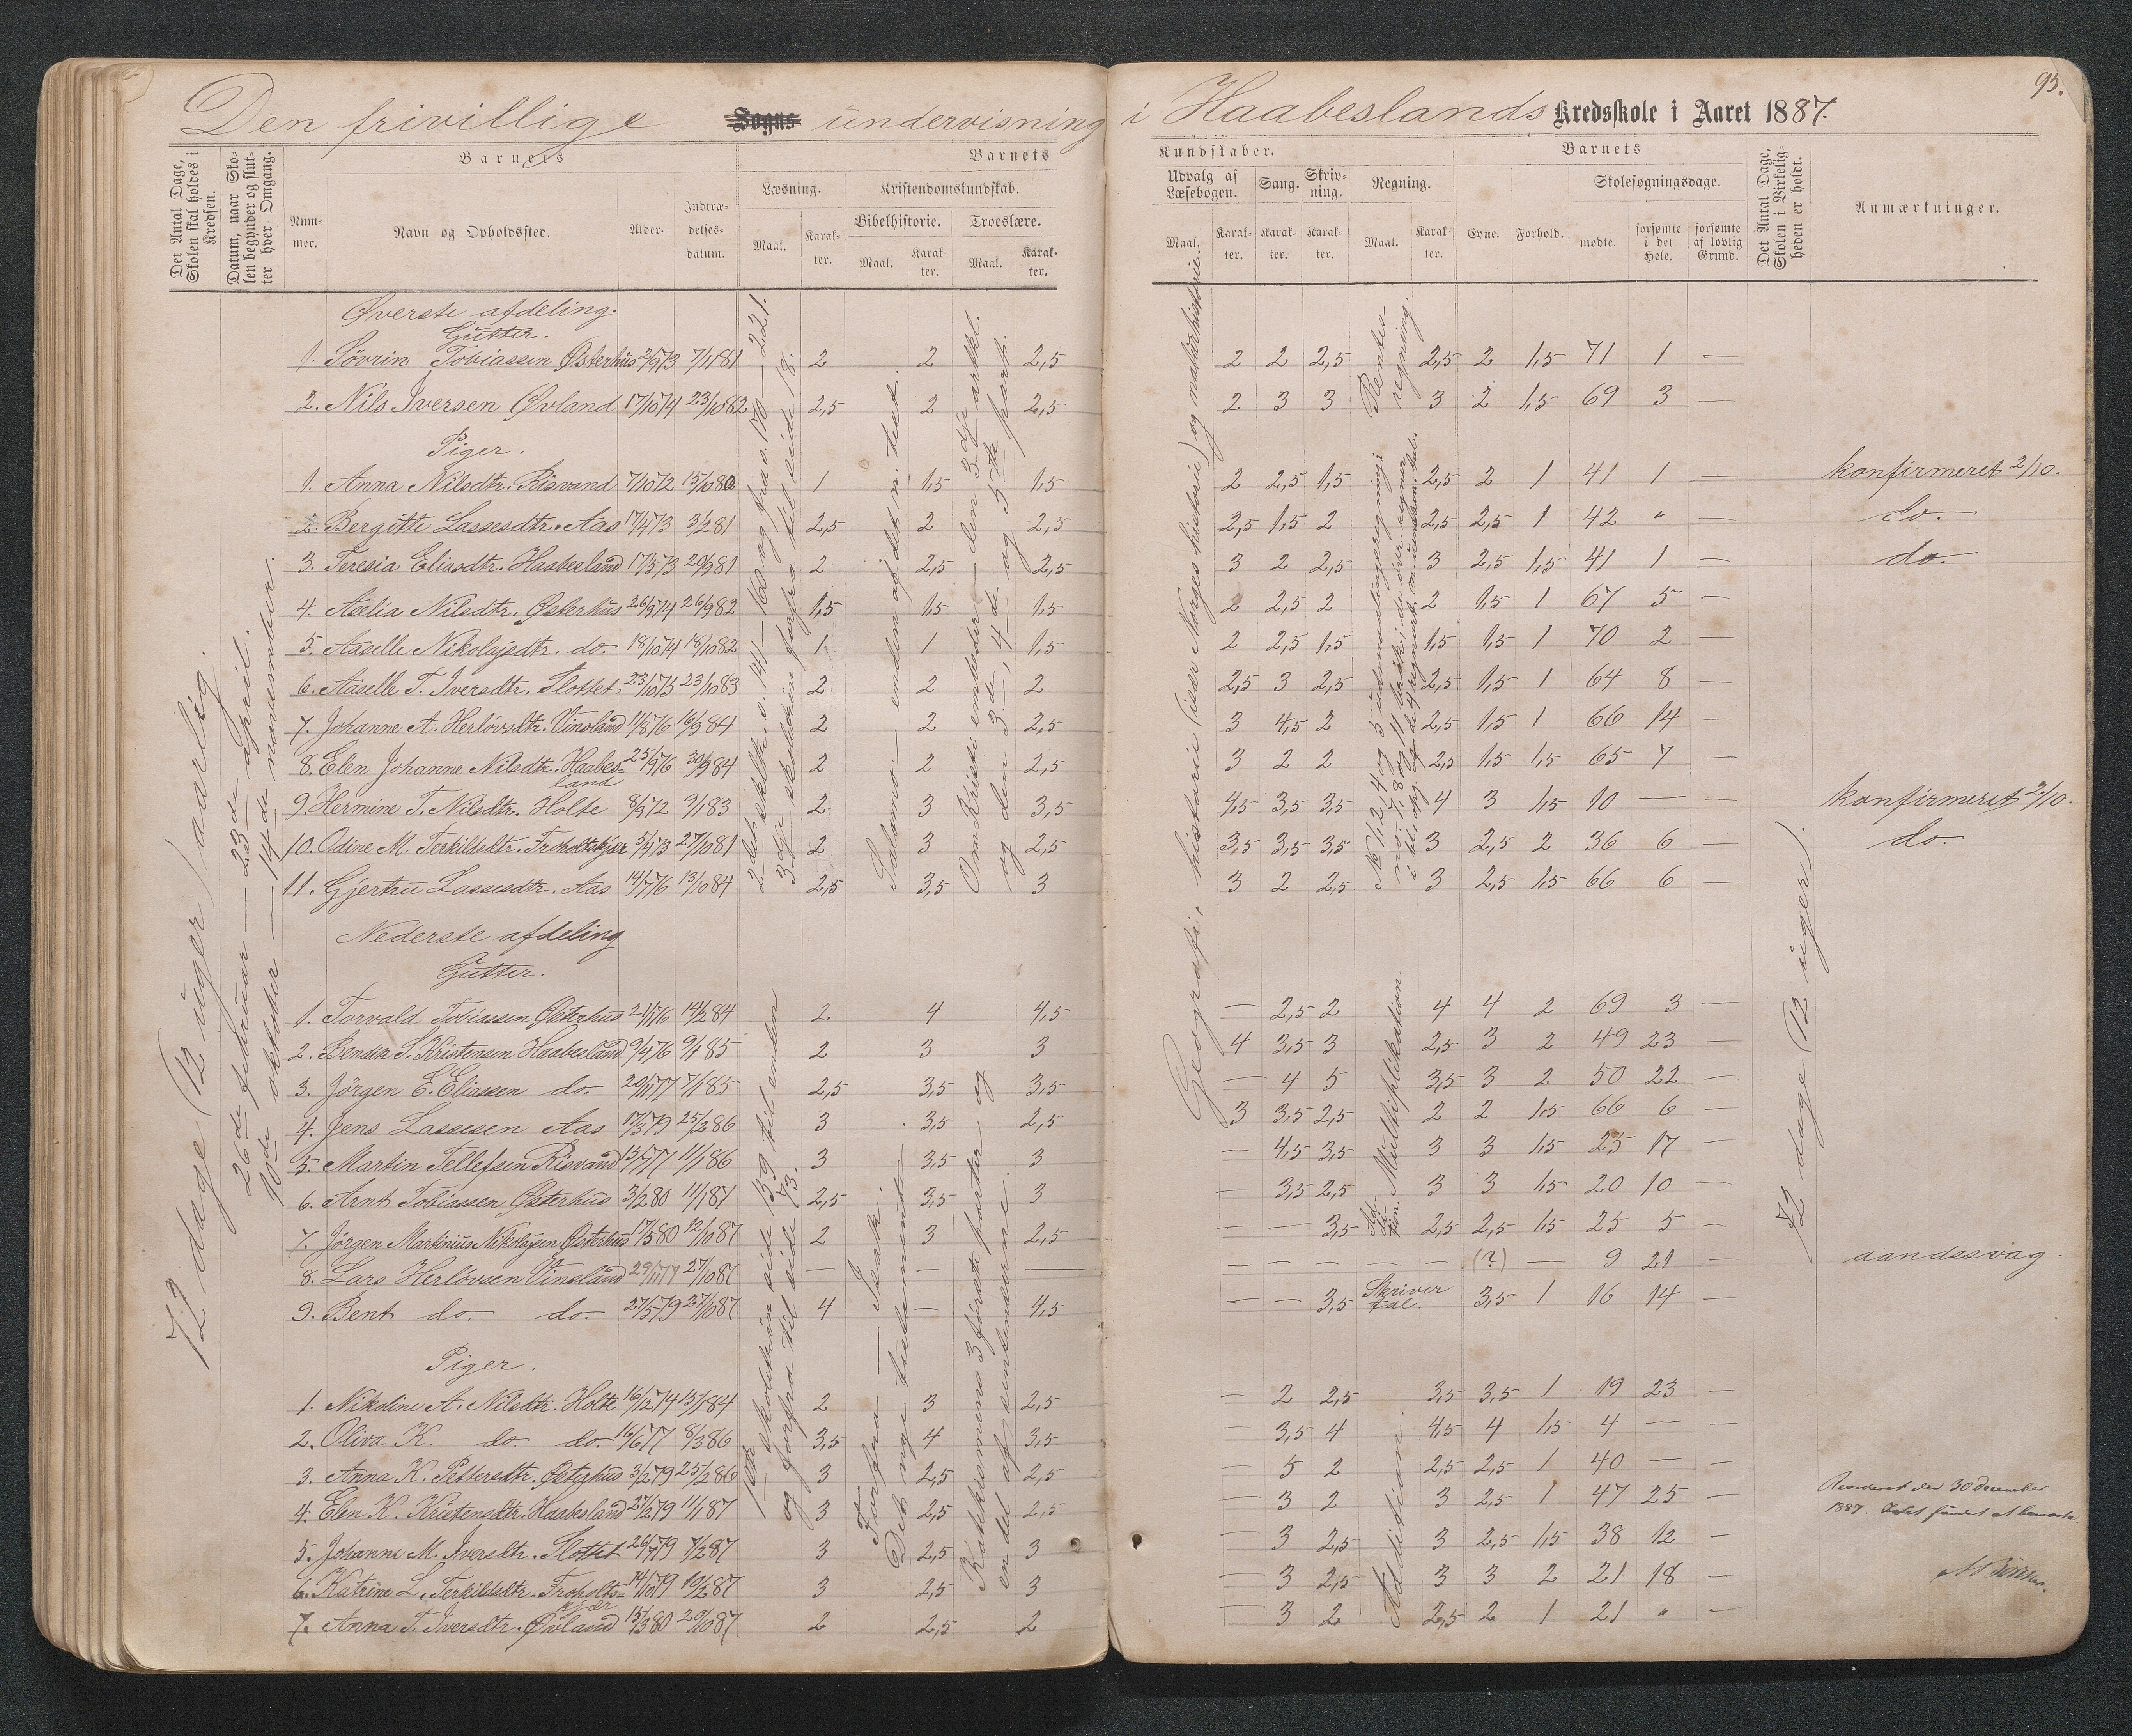 95.
Den frivillige Sogns undervisning i Haabeslands Kredsskole i Aaret 1887.
Det Antal Dage, Skolen skal holdes i Kredsen.
Datum, naar Skolen begynder og slutter hver Omgang.
Barnets
Nummer.
Navn og Opholdssted.
Alder.
Indtrædelsesdatum.
Barnets
Læsning.
Maal.
Karakter.
Kristendomskundskab.
Bibelhistorie.
Maal.
Karakter.
Troeslære.
Maal.
Karakter.
Kundskaber.
Udvalg af Læsebogen.
Maal.
Karakter.
Sang.
Karakter.
Skrivning.
Karakter.
Regning.
Maal.
Karakter.
Barnets
Evne.
Forhold.
Skolesøgningsdage.
mødte.
forsømte i det Hele.
forsømte af lovlig Grund.
Det Antal Dage, Skolen i Virkeligheden er holdt.
Anmærkninger.
72 dage (12 uger) aarlig.
26de februar — 23de april.
10de oktober — 14de november.
Øverste afdeling.
Gutter.
1. Sövrin Tobiassen Østerhus 2/9 73 7/1 81 2 2 2,5 2 2 2,5 2,5 2 1,5 71 1 —
2. Nils Iversen Øvland 17/10 74 23/10 82 2,5 2 2,5 2 3 3 3 2 1,5 69 3 —
Piger.
1. Anna Nilsdtr. Risvand 7/10 72 15/10 80 1 1,5 1,5 2 2,5 1,5 2,5 2 1 41 1 — konfirmeret 2/10.
2. Bergitte Lassesdtr. Aas 17/4 73 3/2 81 2,5 2 2,5 2,5 1,5 2 2,5 2,5 1 42 " — do.
3. Teresia Eliasdtr. Haabesland 17/5 73 20/9 81 2 2,5 2,5 3 2 2,5 3 2,5 1,5 41 1 — do.
4. Aselia Nilsdtr. Østerhus 26/9 74 26/9 82 1,5 1,5 1,5 2 2,5 2 2 1,5 1 67 5 —
5. Aaselle Nikolajsdtr. do. 18/10 74 18/10 82 1 1 1,5 2 2,5 1,5 1,5 1,5 1 70 2 —
6. Aaselle T. Iversdtr. Slottet 23/10 75 23/10 83 2 2 2 2,5 3 2,5 2,5 1,5 1 64 8 —
7. Johanne A. Herlövsdtr. Vinsland 11/8 76 16/9 84 2 2 2,5 3 4,5 2 2,5 1,5 1 66 14 —
8. Elen Johanne Nilsdtr. Haabesland 25/9 76 30/9 84 2 2 2,5 3 2 2 2,5 1,5 1,5 65 7 —
9. Hermine T. Nilsdtr. Holte 8/9 72 9/1 83 2 3 3,5 4,5 3,5 3,5 4 3 1,5 10 — — konfirmeret 2/10.
10. Odine M. Terkildsdtr. Froholtskjær 5/4 73 27/10 81 2 3 2,5 3,5 3,5 3,5 3 2,5 2 36 6 — do.
11. Gjertru Lassesdtr. Aas 14/7 76 13/10 84 2,5 3,5 3 3 2 2,5 3 2,5 1,5 66 6 —
Salmo — enden af det n. test.
Rentesregning.
Geografi, historie (især Norges historie) og naturhistorie.
Nederste afdeling
Gutter.
1. Torvald Tobiassen Østerhus 2/1 76 14/2 84 2 4 4,5 — 2,5 2 4 4 2 69 3 —
2. Bendix S. Kristensen Haabesland 9/4 76 9/1 85 2 3 3 4 3,5 3 2,5 3 2 49 23 —
3. Jörgen E. Eliassen do. 20/1 77 7/1 85 2,5 3,5 3,5 — 4 5 3,5 3 2 50 22 —
4. Jens Lassesen Aas 17/3 79 25/2 86 3 3,5 2,5 3 3,5 2,5 2 2 1,5 66 6 —
5. Martin Tellefsen Risvand 15/7 77 11/1 86 3 3,5 3 — 4,5 3,5 3 3 1,5 25 17 —
6. Arnt Tobiassen Østerhus 3/2 80 11/1 87 2,5 3,5 3 — 3,5 2,5 3 3 1,5 20 10 —
7. Jörgen Martinius Nikolajsen Østerhus 17/5 80 12/10 87 2 3 2,5 — — 3,5 2,5 2,5 1,5 25 5 —
8. Lars Herlövsen Vinsland 29/11 77 27/10 87 — — — — — — — — (?) — 9 21 — aandssvag.
9. Bent do. do. 27/5 79 27/10 87 4 — 4,5 — — 3,5 Skriver tal. 3,5 1 16 14 —
Multiplikation.
Addition.
Piger.
1. Nikoline A. Nilsdtr. Holte 16/2 74 15/1 84 2 3 2,5 — 2 2,5 3,5 3,5 1 19 23 —
2. Oliva K. do. do. 16/6 77 8/3 86 3,5 4 3,5 — 3,5 4 4,5 4 1,5 4 — —
3. Anna K. Pettersdtr. Østerhus 3/2 79 25/2 86 3 2,5 2,5 — 5 2 2,5 2,5 1 40 — —
4. Elen K. Kristensdtr. Haabesland 27/2 79 11/1 87 3 2,5 2,5 — 3 2 3 2,5 1 47 25 —
5. Johanne M. Iversdtr. Slottet 26/7 79 7/2 87 3 2,5 3 — 3 2,5 3 2,5 1,5 38 12 —
6. Katrine L. Terkildsdtr. Froholtskjær 14/10 79 10/2 87 3 2,5 3 — 3 2,5 3 3 2 21 18 —
7. Anna T. Iversdtr. Øvland 15/3 80 20/10 87 2 2,5 2 — 3 2 2,5 2 1 21 " —
1ste skoletrin side 139 til enden
og forfra til side 73.
Forfra — Isak.
Det nye testamente
Katekismens 3 første parter og
en del af sentenserne.
Addition.
72 dage (12 uger).
Revideret den 30 December
1887.